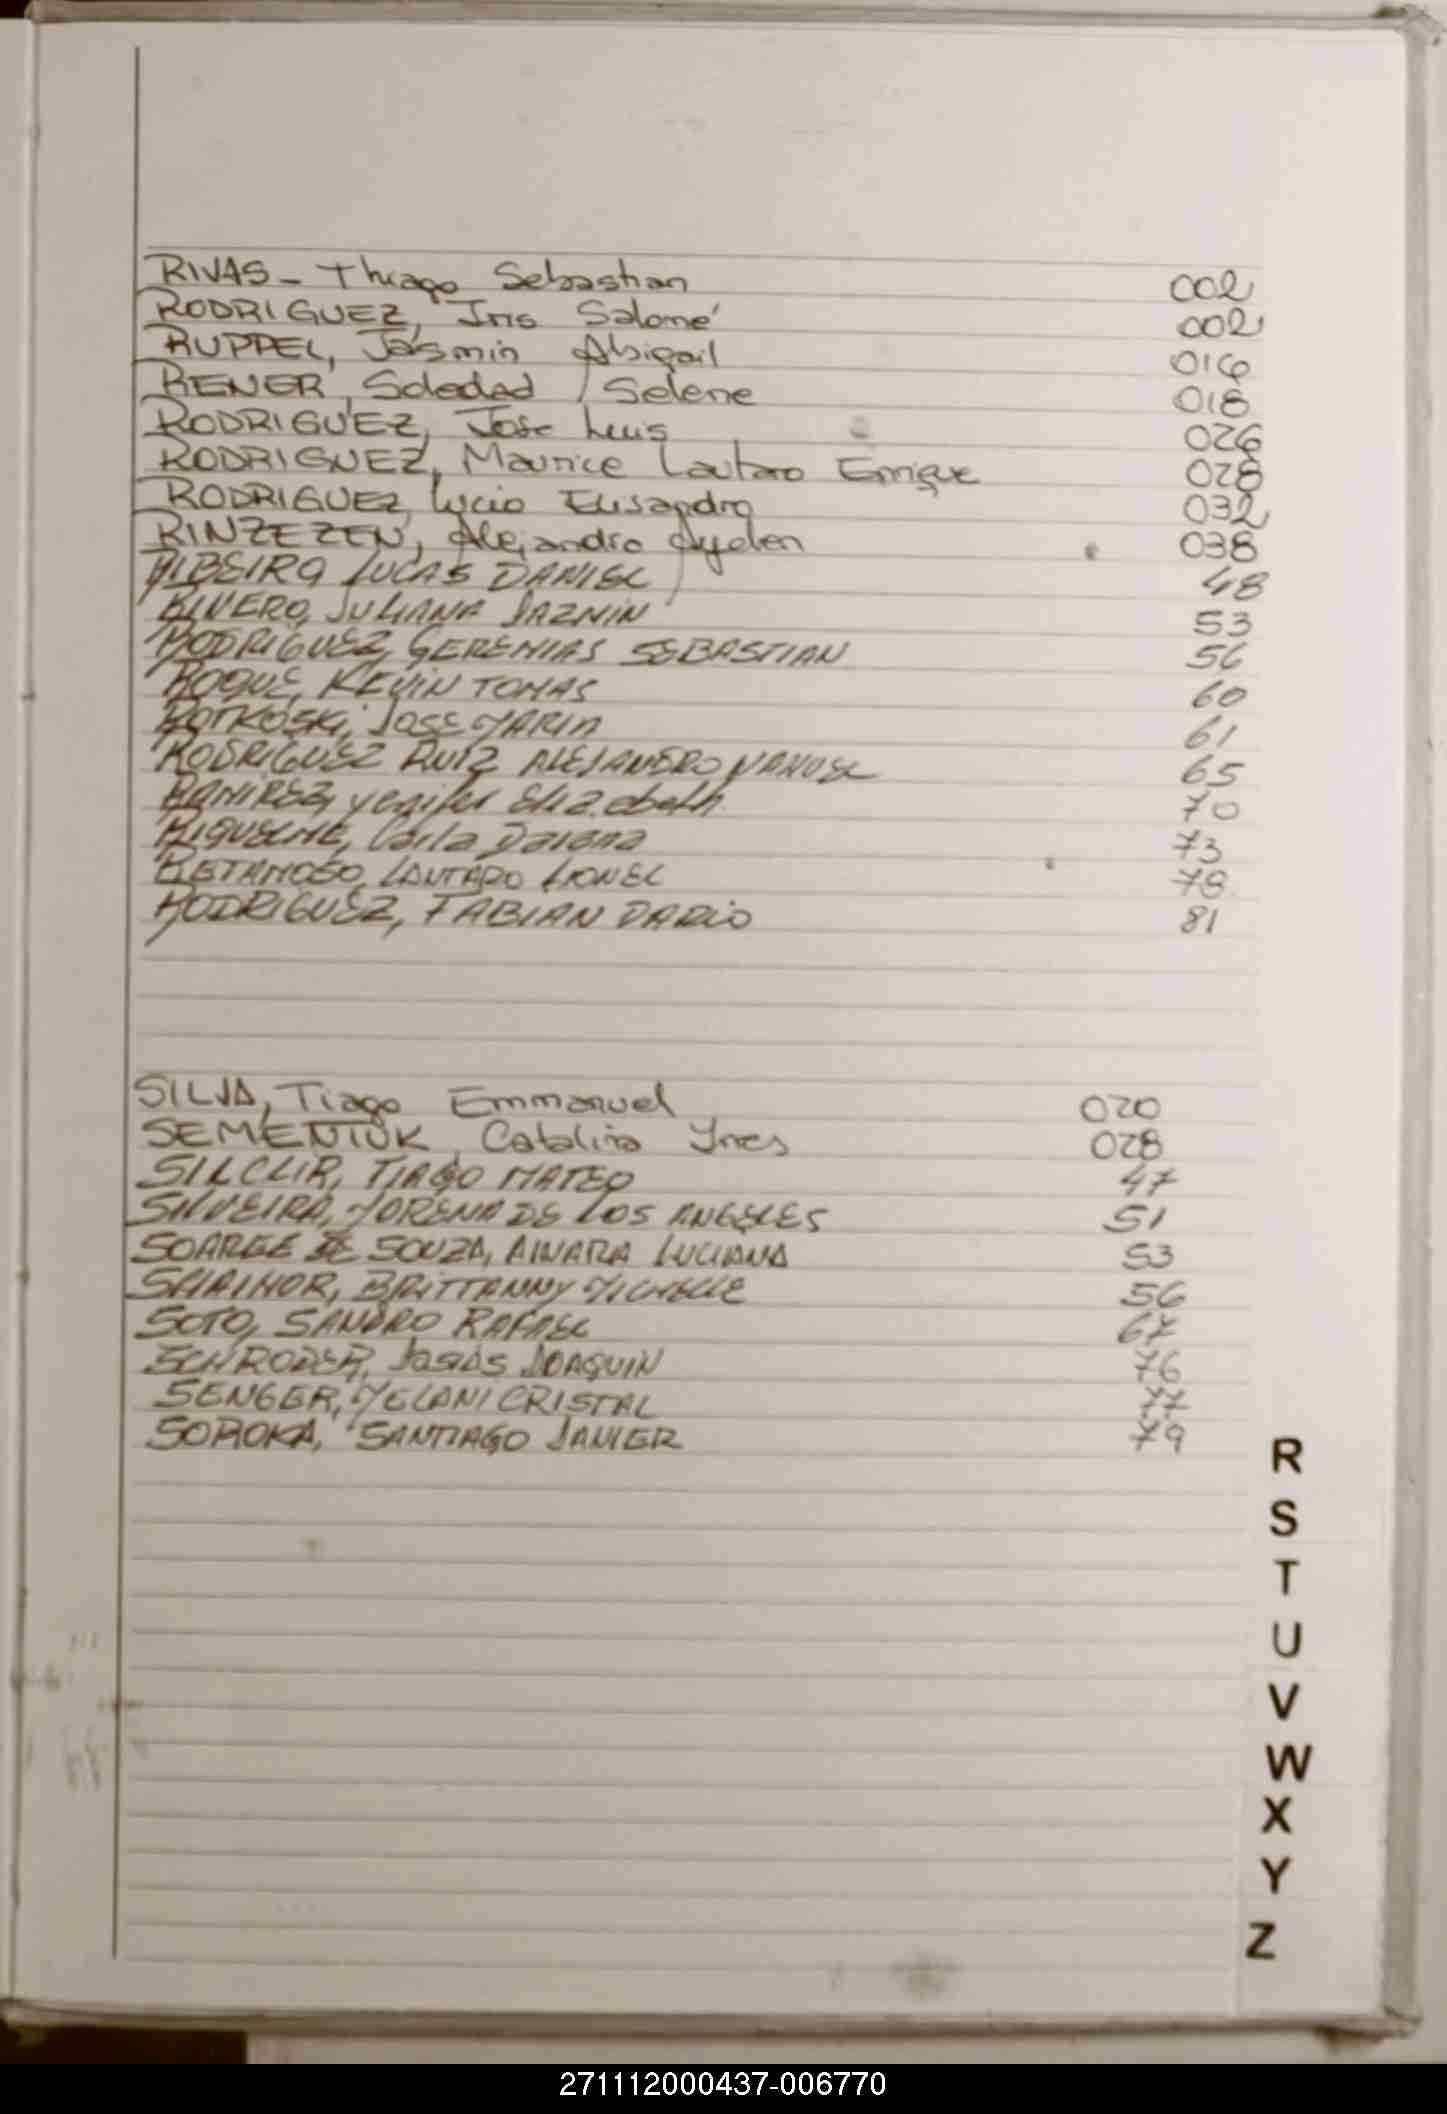 RIVAS - Thiago Sebastian 002
RODRIGUEZ, Iris Salomé 002
RUPPEL, Jasmin Abigail 016
RENER, Soledad Selene 018
RODRIGUEZ, Jose Luis 026
RODRIGUEZ, Maurice Lautaro Enrique 028
RODRIGUEZ Lucio Elisandro 032
RINZEZEN, Alejandro Ayelen 038
RIBEIRO LUCAS DANIEL 48
RIVERO, JULIANA JAZMIN 53
RODRIGUEZ, GEREMIAS SEBASTIAN 56
ROQUE, KEVIN TOMAS 60
ROTKOSKI, JOSE MARIA 61
RODRIGUEZ RUIZ ALEJANDRO MANUEL 65
RAMIREZ, Yenifer Elizabeth 70
RIQUELME, Carla Daiana 73
RETAMOSO, LAUTARO LIONEL 78
RODRIGUEZ, FABIAN DARIO 81
SILVA, Tiago Emmanuel 020
SEMENIUK, Catalina Ines 028
SILCLIR, TIAGO MATEO 47
SILVEIRA, MORENA DE LOS ANGELES 51
SOARGE DE SOUZA, AINARA LUCIANA 53
BRITTANNY MICHELLE 56
SOTO, SANDRO RAFAEL 67
SCHRODER, JOAQUIN 76
SENGER, MELANI CRISTAL 77
SOROKA, SANTIAGO JAVIER 79
R
S
T
U
V
W
X
Y
Z
271112000437-006770